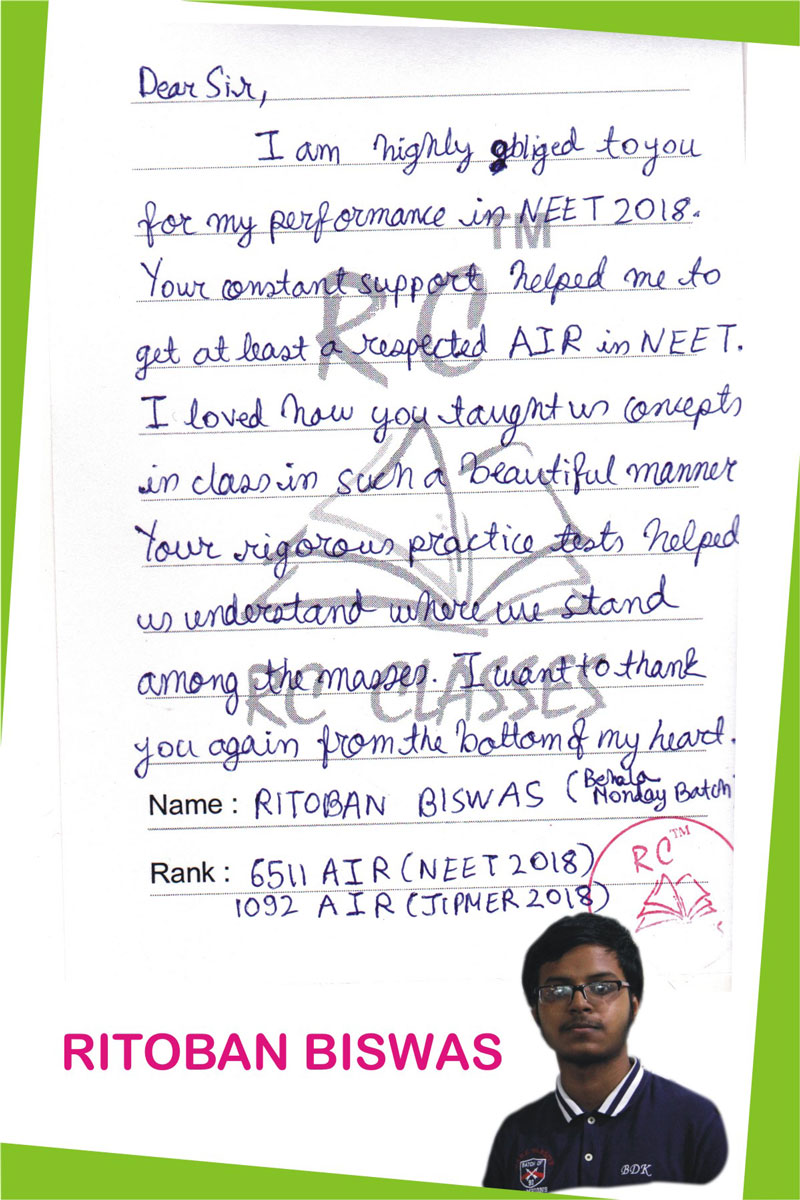 Dear Sir,
I am highly obliged to you
for my performance in NEET 2018.
TM
Your constant support helped me to
RC
get at least a respected AIR in NEET.
I loved how you taught us concepts
in class in such a beautiful manner
Your rigorous practice tests helped
us understand where we stand
among the masses. I want to thank
RC CLASSES
you again from the bottom of my heart.
Name : RITOBAN BISWAS (Behala
Monday Batch
Rank : 6511 AIR (NEET 2018)
1092 AIR (JIPMER 2018)
RC TM
RITOBAN BISWAS
BATCH OF
BDK